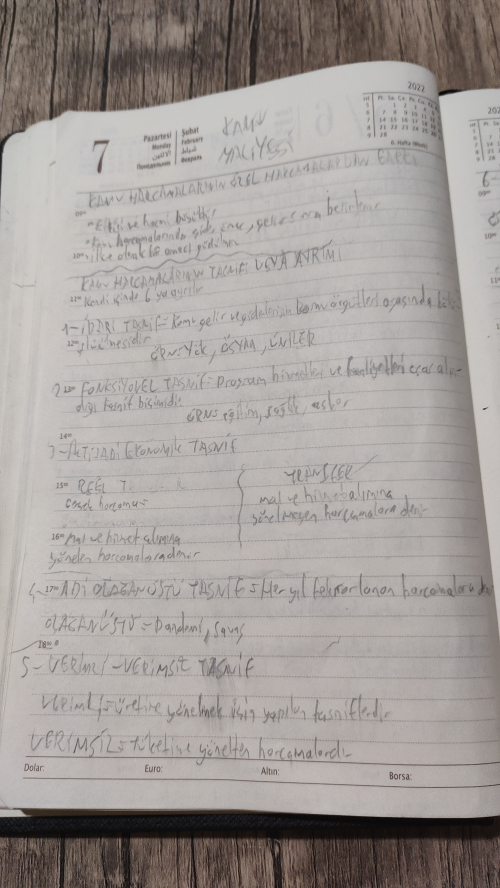 7
Pazartesi
Monday
Şubat
February
2022
6. Hafta (Week)
KAMU
MALİYESİ
KAMU HARCAMALARININ ÖZEL HARCAMALARDAN FARKI
Etkisi ve hacmi büyüktür
Kamu harcamalarında gider önce, gelir sonra belirlenir
KAMU HARCAMALARININ TASNİFİ VEYA AYRIMI
Kendi içinde 6 ya ayrılır
1- İDARİ TASNİF = Kamu gelir ve giderlerinin kamu örgütleri arasında
ÖRN: YÖK, ÖSYM, ÜNİLER
2- FONKSİYONEL TASNİF = Program hizmetleri ve faaliyetleri esas
tasnif biçimidir
ÖRN = eğitim, sağlık, asker
3- İKTİSADİ EKONOMİK TASNİF
REEL
Gerçek harcama =
Mal ve hizmet alımına
yönelen harcamalara denir
TRANSFER
mal ve hizmet alımına
yönelmeyen harcamalara denir
4- ADİ OLAĞANÜSTÜ TASNİF = Her yıl tekrarlanan harcamalara
OLAĞANÜSTÜ = Pandemi, Savaş
5- VERİMLİ - VERİMSİZ TASNİF
VERİMLİ = üretime yönelmek için yapılan tasniflerdir
VERİMSİZ = tüketime yönelten harcamalardır
Dolar:
Euro:
Altın:
Borsa: